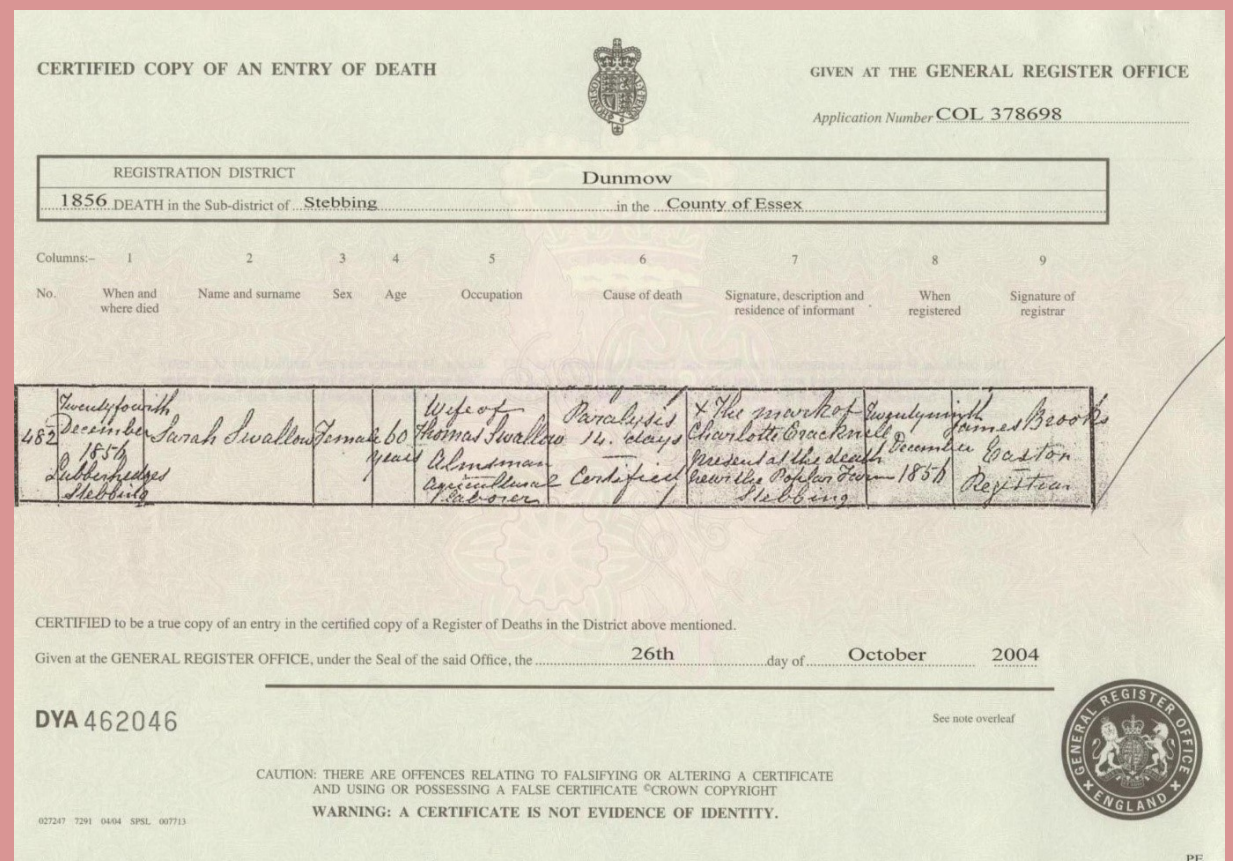 CERTIFIED COPY OF AN ENTRY OF DEATH
GIVEN AT THE GENERAL REGISTER OFFICE
Application Number COL 378698
REGISTRATION DISTRICT Dunmow
1856 DEATH in the Sub-district of Stebbing in the County of Essex
Columns:– 1 2 3 4 5 6 7 8 9
No. When and where died Name and surname Sex Age Occupation Cause of death Signature, description and residence of informant When registered Signature of registrar
482
Twentyfourth
December
1856
Lubberhedges
Stebbing
Sarah Swallow
Female
60
years
Wife of
Thomas Swallow
Almsman
Agricultural
Laborer
Paralysis
14 days
Certified
X The mark of
Charlotte Cracknell
Present at the death
near the Poplar Farm
Stebbing
Twentyninth
December
1856
James Brooks
Easton
Registrar
CERTIFIED to be a true copy of an entry in the certified copy of a Register of Deaths in the District above mentioned.
Given at the GENERAL REGISTER OFFICE, under the Seal of the said Office, the 26th day of October 2004
DYA 462046
See note overleaf
CAUTION: THERE ARE OFFENCES RELATING TO FALSIFYING OR ALTERING A CERTIFICATE
AND USING OR POSSESSING A FALSE CERTIFICATE ©CROWN COPYRIGHT
WARNING: A CERTIFICATE IS NOT EVIDENCE OF IDENTITY.
027247 7291 04/04 SPSL 007713
GENERAL REGISTER OFFICE
ENGLAND
PF